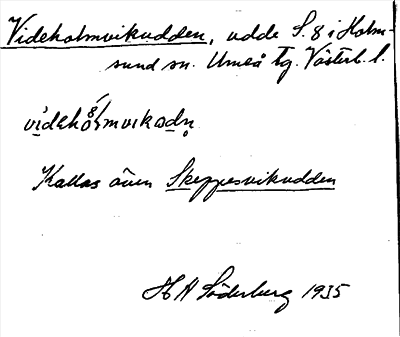 Videholmvikudden, udde S. 8 i Holm-
sund sn. Umeå tg. Västerb. l.
Kallas även Skeppesvikudden
H A Söderberg 1935